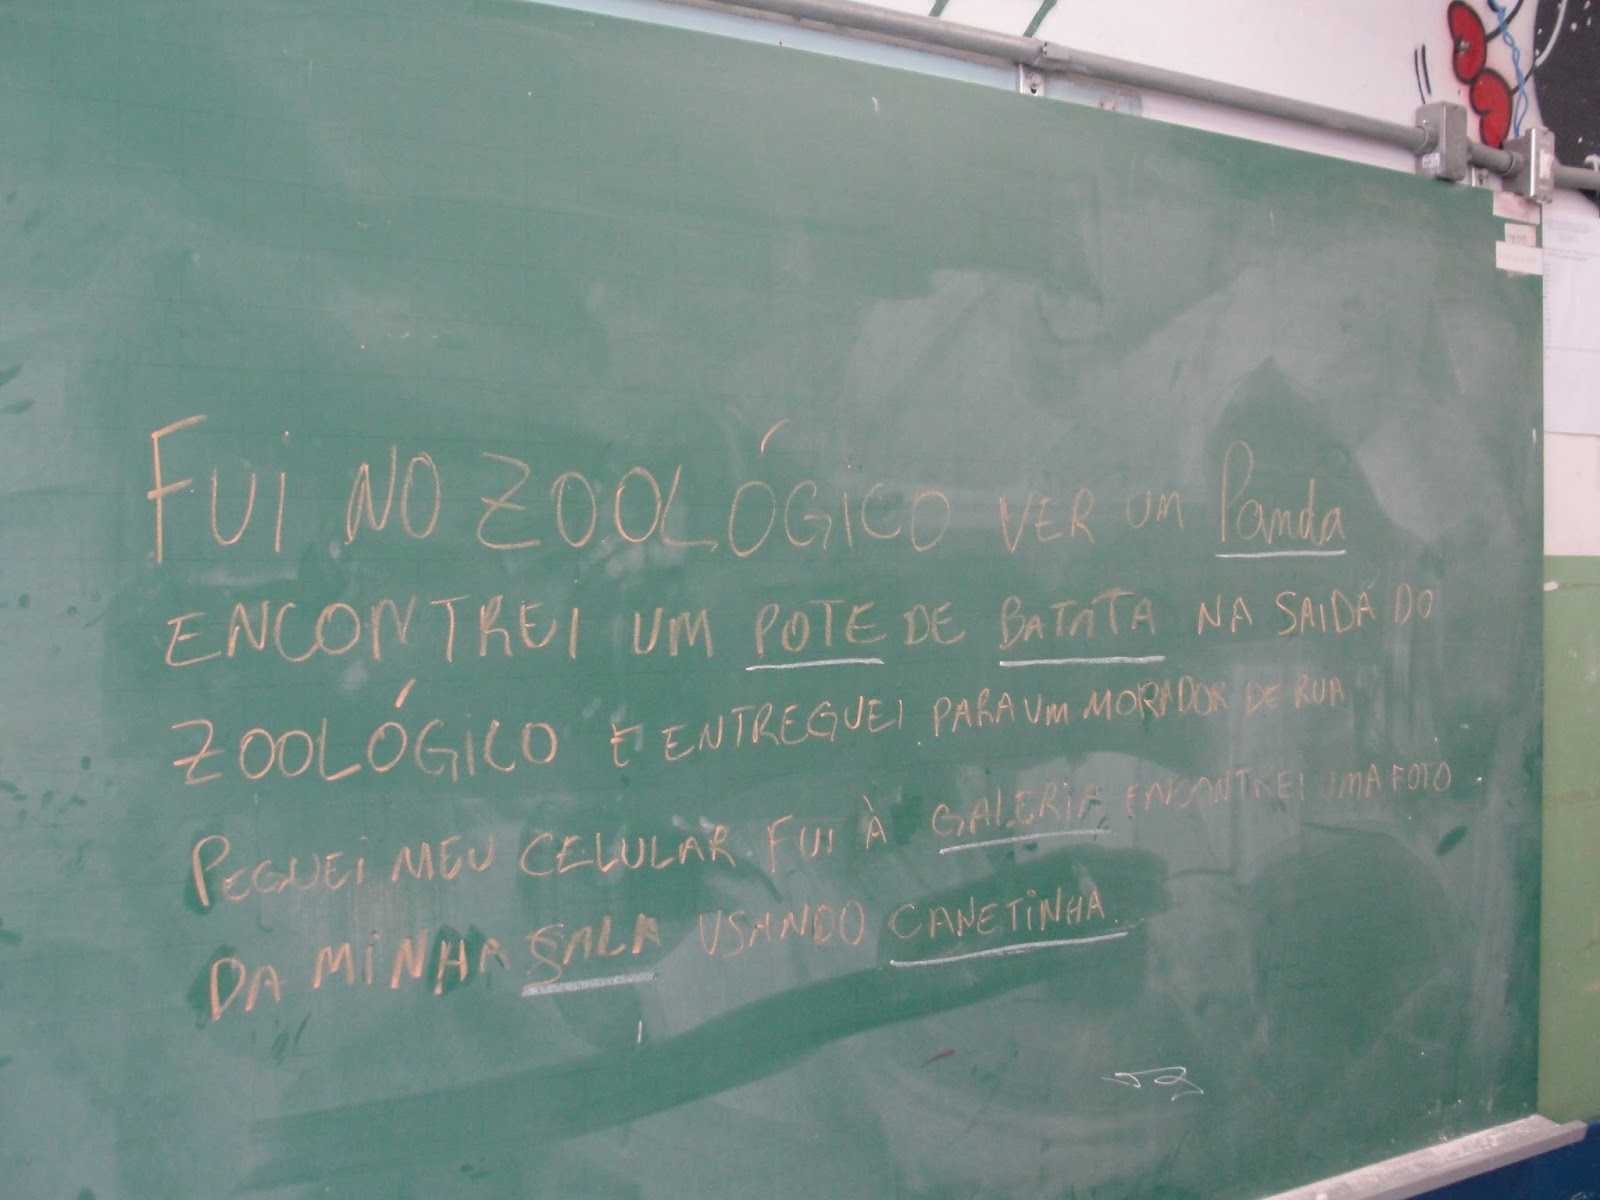 FUI NO ZOOLÓGICO VER UM Panda
ENCONTREI UM POTE DE BATATA NA SAIDA DO
ZOOLÓGICO E ENTREGUEI PARA UM MORADOR DE RUA
PEGUEI MEU CELULAR FUI À GALERIA ENCONTREI UMA FOTO
DA MINHA SALA USANDO CANETINHA